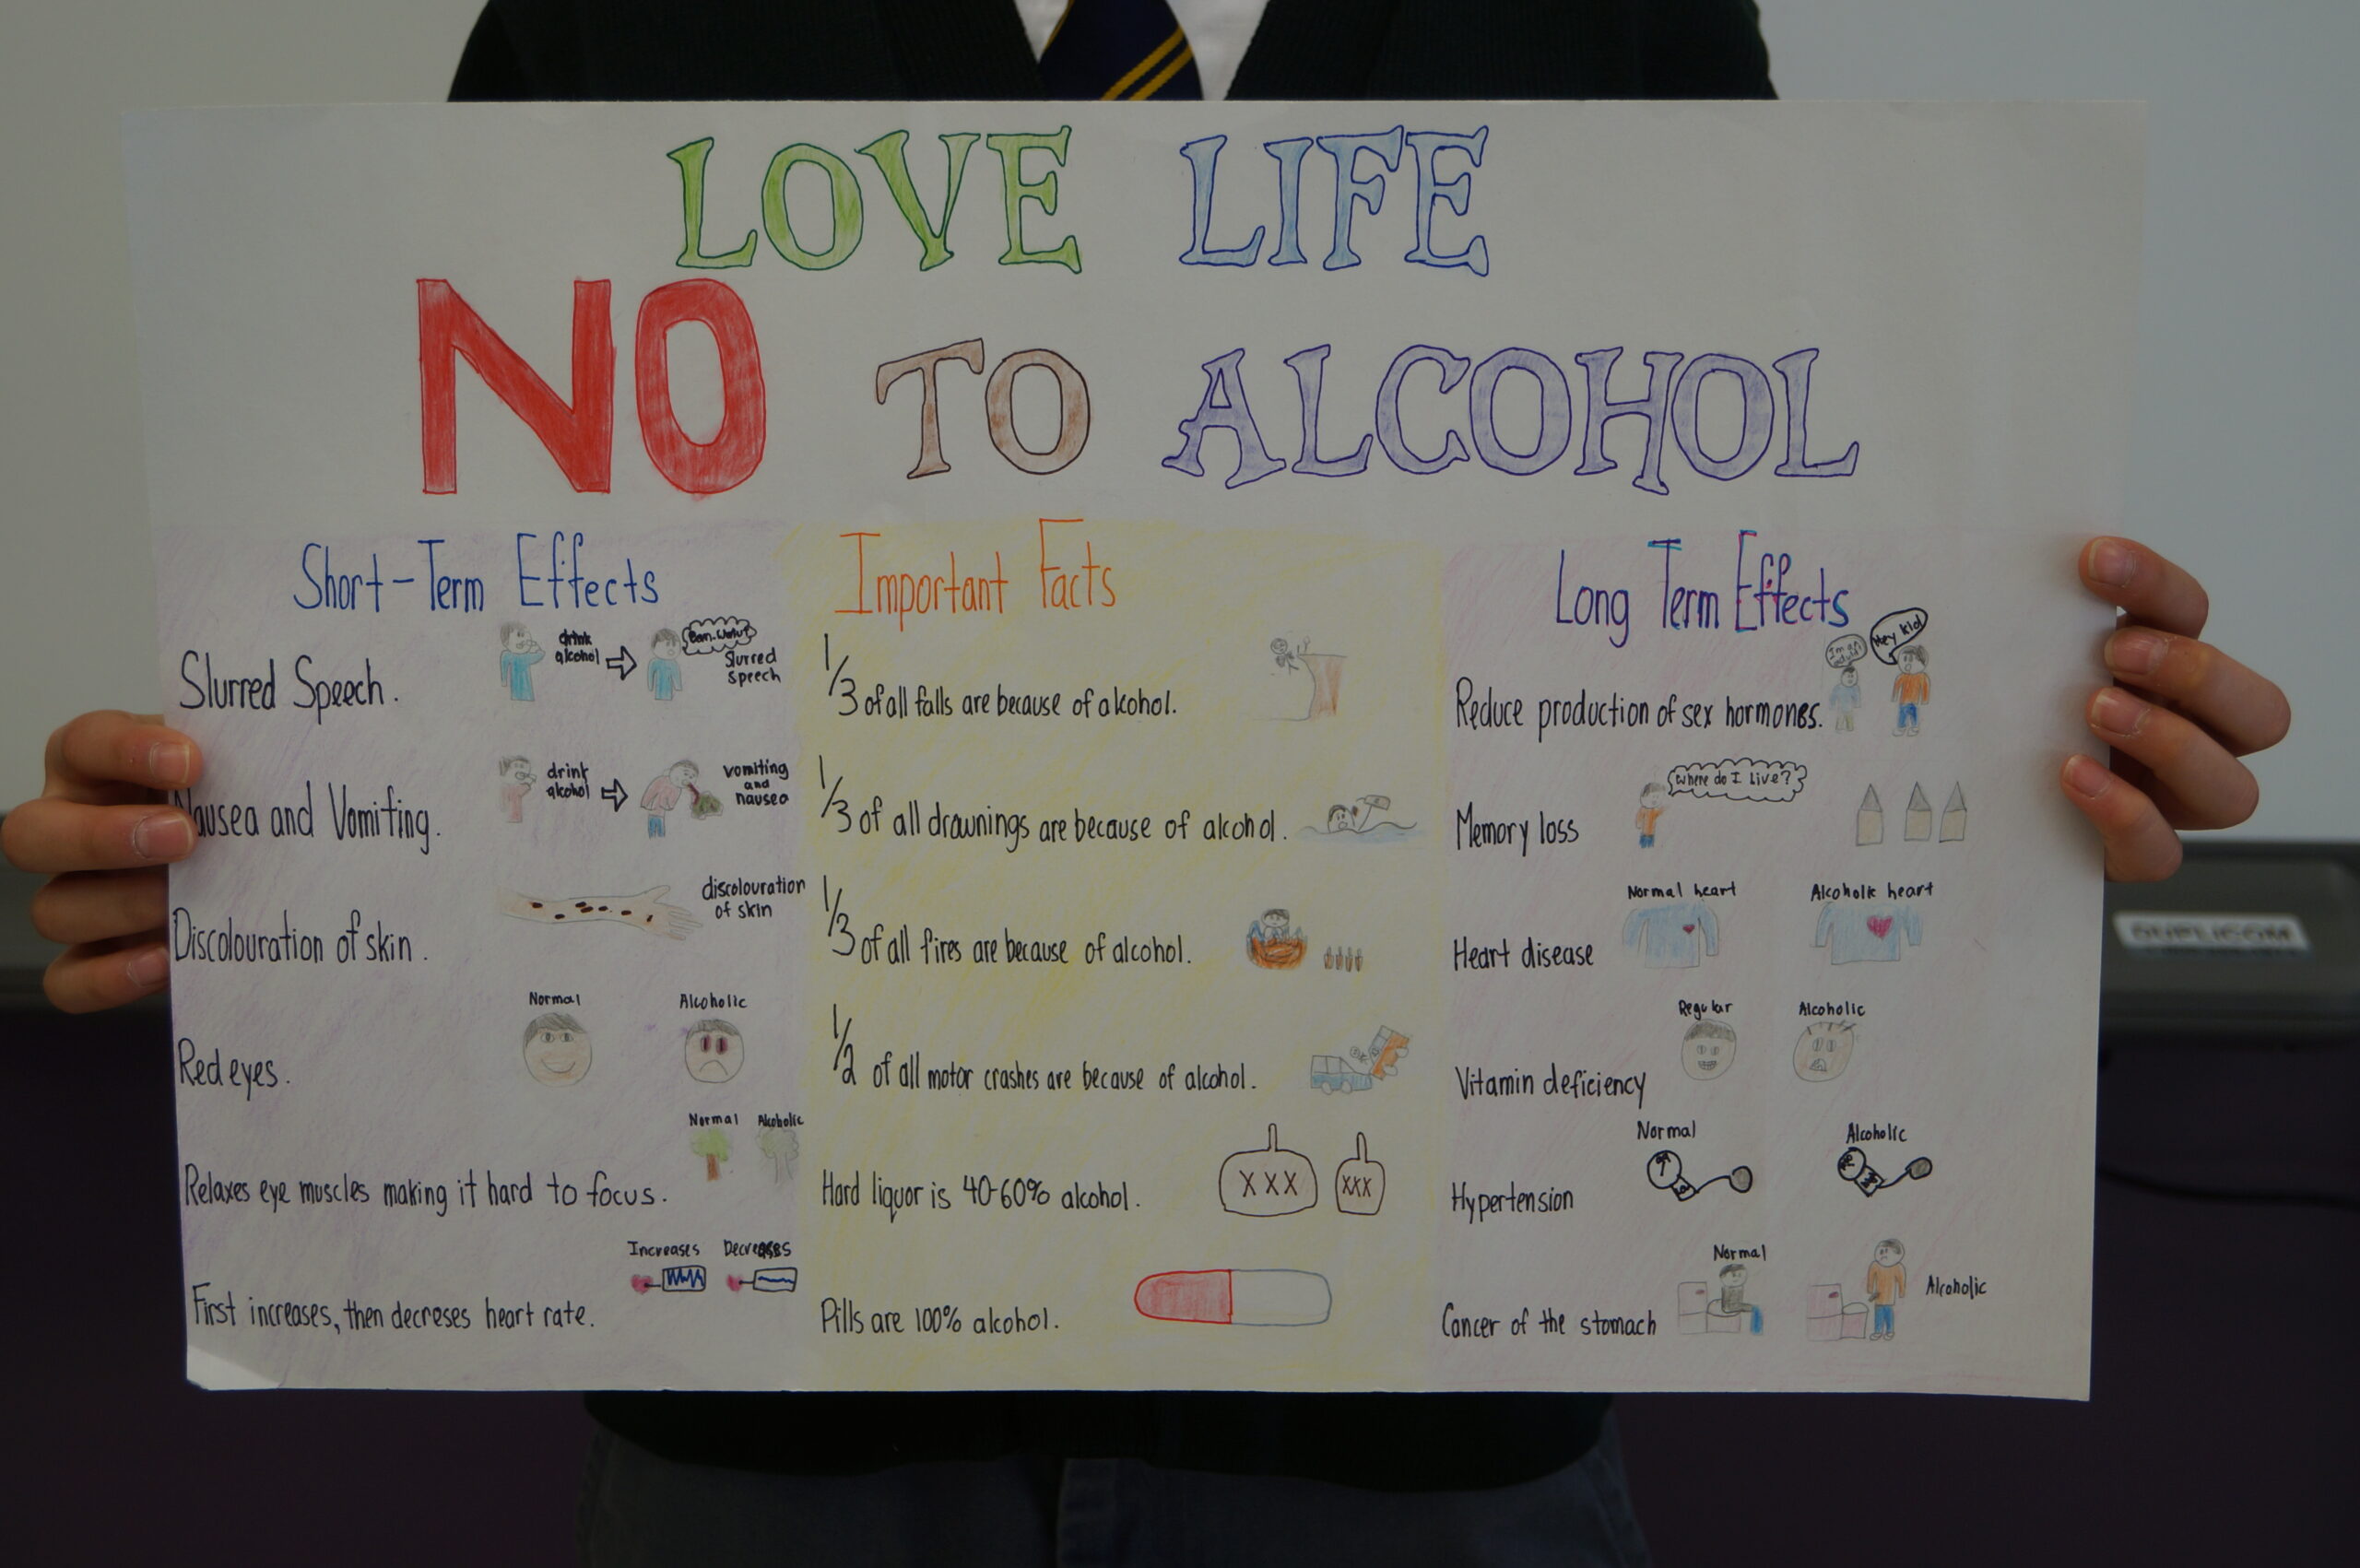 LOVE LIFE
NO TO ALCOHOL
Short-Term Effects
Slurred Speech.
drink
alcohol
Slurred
speech
Nausea and Vomiting.
drink
alcohol
vomiting
and
nausea
Discolouration of skin.
discolouration
of skin
Red eyes.
Normal
Alcoholic
Relaxes eye muscles making it hard to focus.
Normal
Alcoholic
First increases, then decreses heart rate.
Increases
Decreases
Important Facts
1/3 of all falls are because of alcohol.
1/3 of all drownings are because of alcohol.
1/3 of all fires are because of alcohol.
1/2 of all motor crashes are because of alcohol.
Hard liquor is 40-60% alcohol.
XXX
XXX
Pills are 100% alcohol.
Long Term Effects
Reduce production of sex hormones.
Hey kid
Memory loss
Where do I live?
Heart disease
Normal heart
Alcoholic heart
Vitamin deficiency
Regular
Alcoholic
Hypertension
Normal
Alcoholic
Cancer of the stomach
Normal
Alcoholic
DUPLICOM